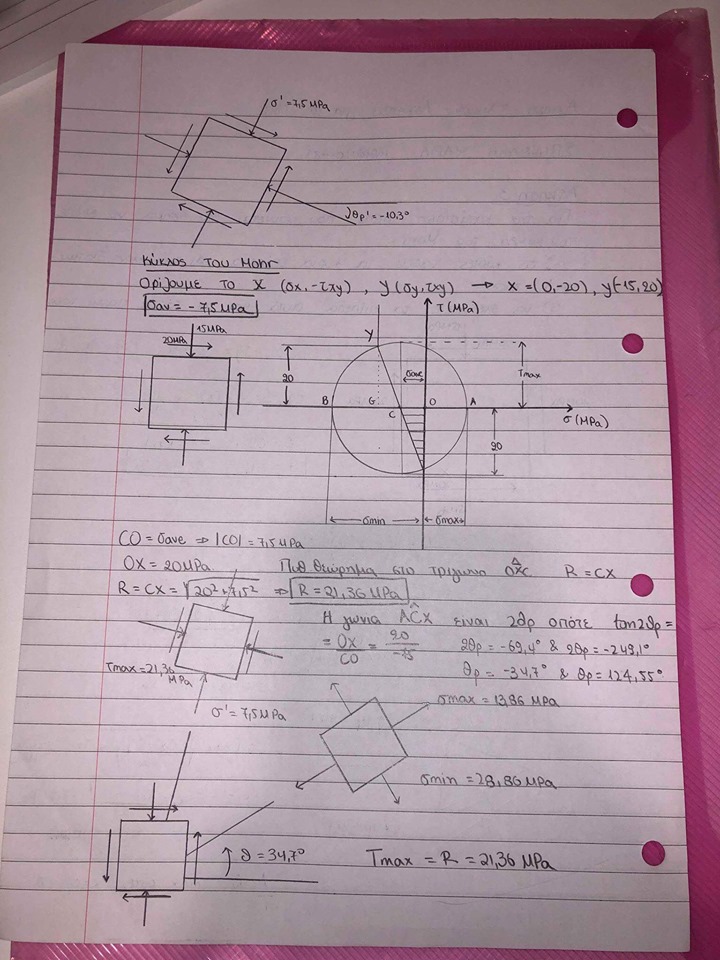 σ' = 7,5 MPa
θp' = -10,3°
Κύκλος του Mohr
Ορίζουμε το X (σx, -τxy) , Y (σy, τxy) → X = (0,-20), Y(-15,20)
σav = -7,5 MPa
τ (MPa)
15MPa
20MPa
Y
20
σave
Tmax
B
G
C
O
A
σ (MPa)
20
σmin
σmax
CO = σave ⇒ |CO| = 7,5 MPa
OX = 20MPa Πυθ θεώρημα στο τρίγωνο OXC R = CX
R = CX = √20²+7,5² ⇒ R = 21,36 MPa
Η γωνία ACX είναι 2θp οπότε tan2θp =
= OX/CO = 20/
2θp = -69,4° & 2θp = -249,1°
θp = -34,7° & θp = 124,55°
Tmax = 21,36 MPa
σ' = 7,5 MPa
σmax = 13,86 MPa
σmin = 28,86 MPa
θ = 34,7°
Tmax = R = 21,36 MPa